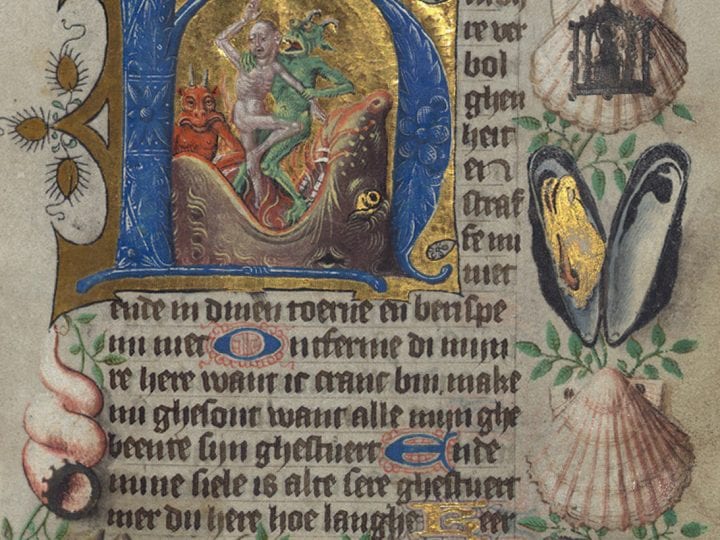 re ver
bol
ghen
heit
en
straf
fe mi
niet
ende in dinen toerne en berispe
mi niet Ontferme di mijn
re here want ic cranc bin. make
mi ghesont want alle mijn ghe
beente sijn ghestuert Ende
mine siele is alte sere ghestuert
mer du here hoe langhe Keer